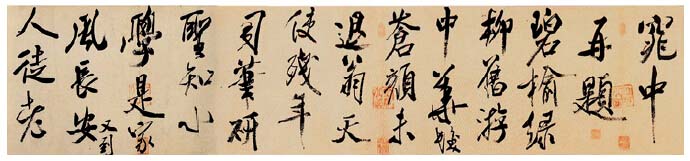 窕中
再題
碧榆綠
柳舊游
中華髮
蒼顏未
退翁天
使殘年
司筆研
聖知小
學是家
風長安又到
人徒老